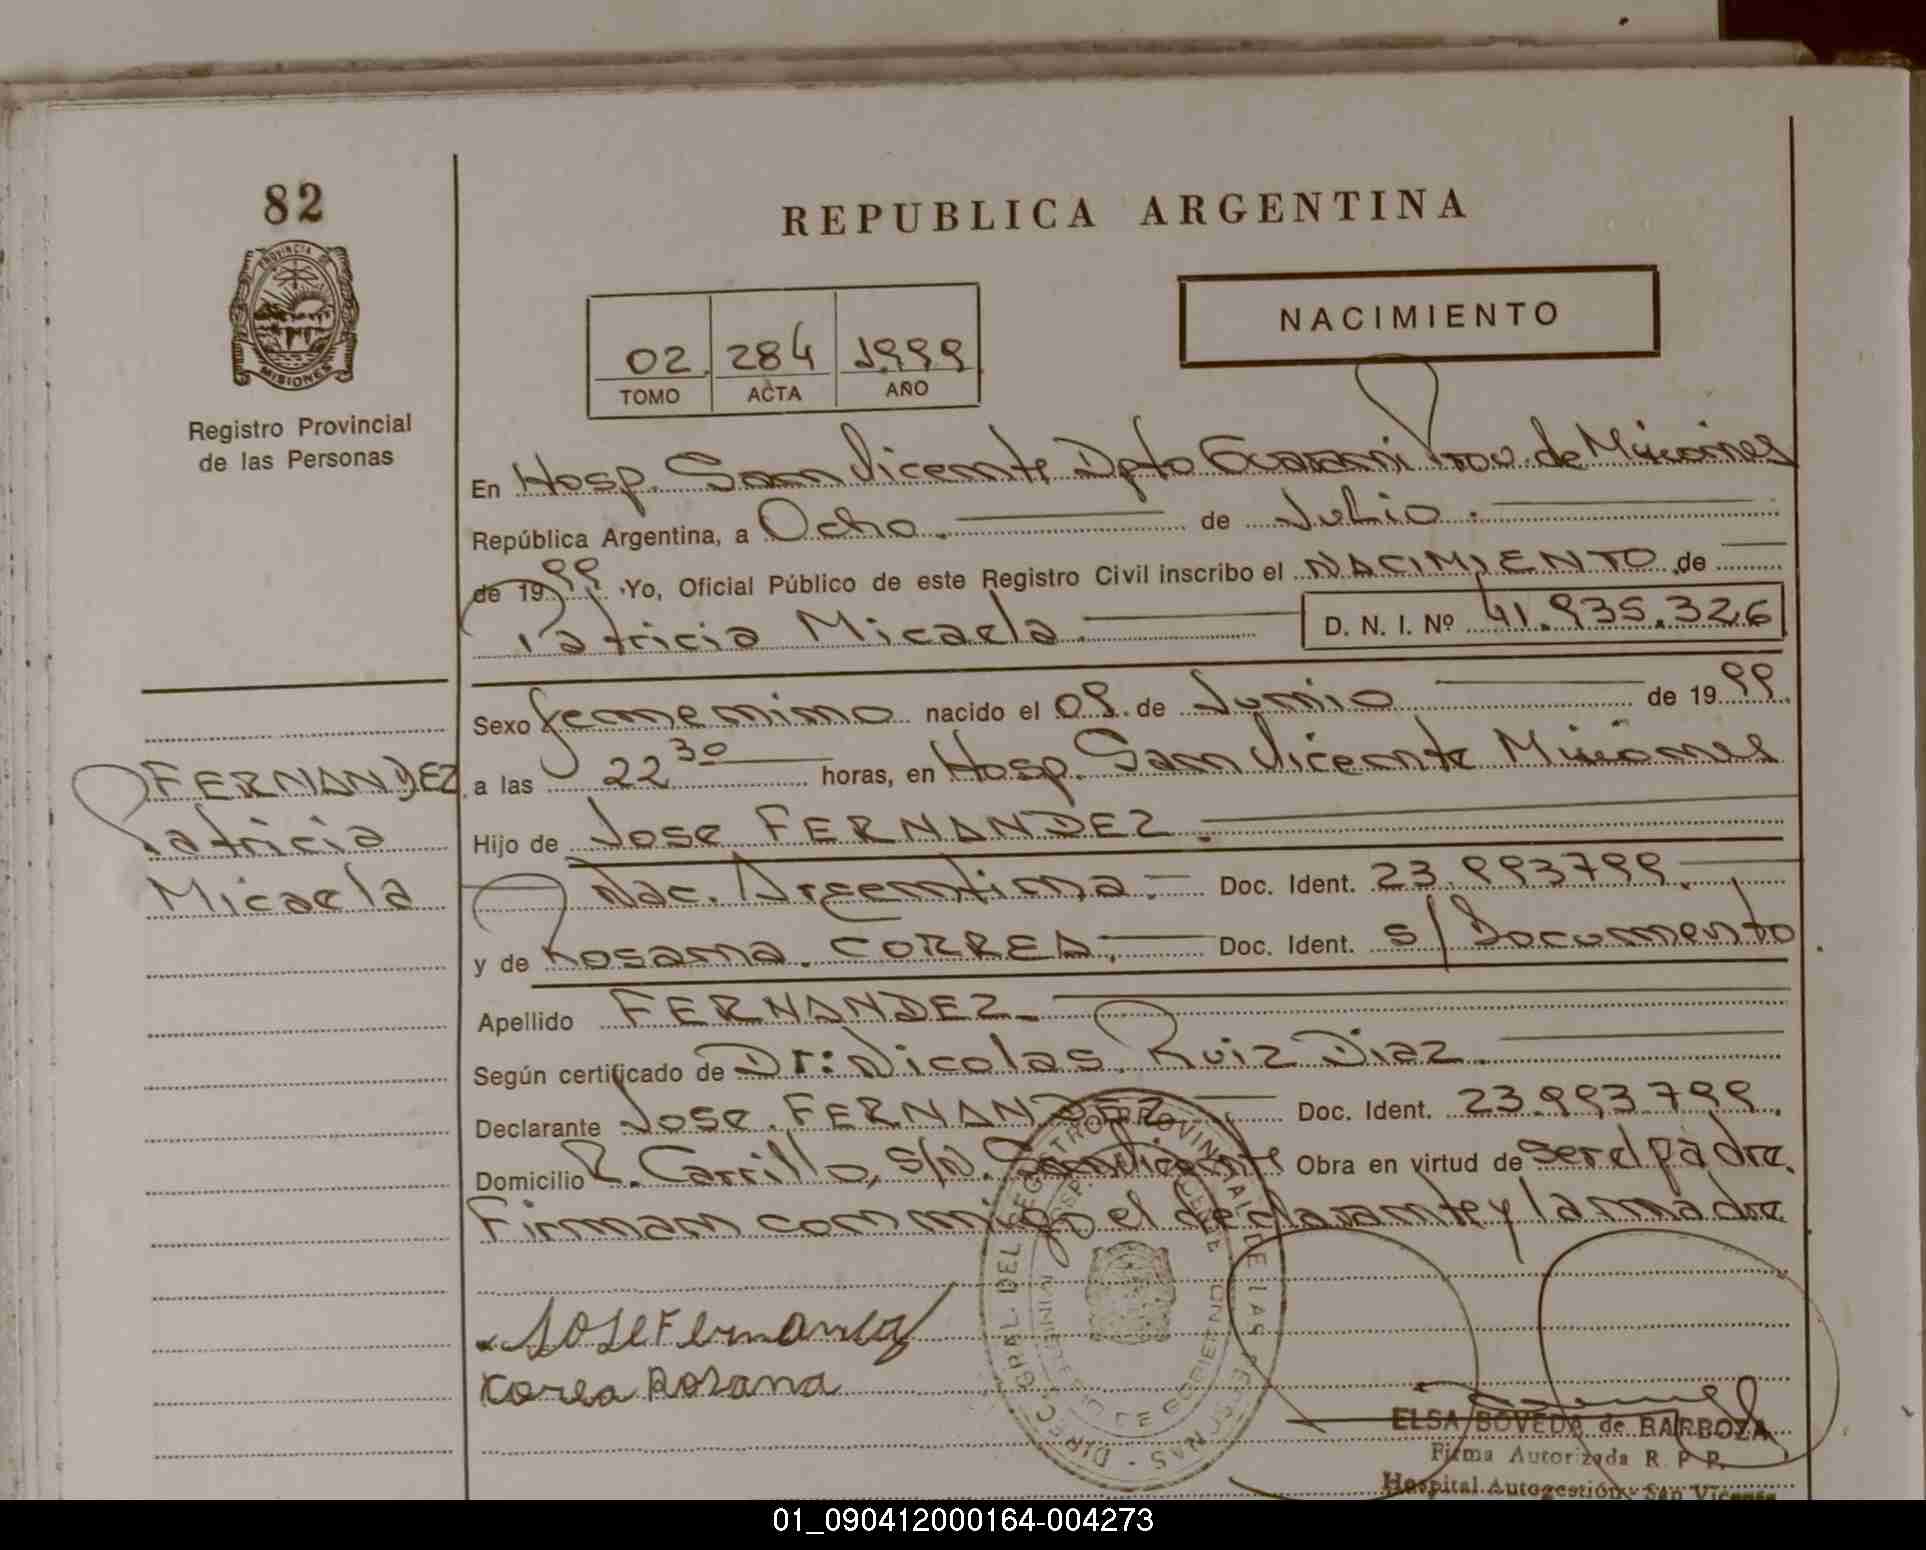 82
PROVINCIA DE
MISIONES
Registro Provincial
de las Personas
REPUBLICA ARGENTINA
02 284 1999
TOMO ACTA AÑO
NACIMIENTO
En Hosp. San Vicente Dpto Guarani Prov. de Misiones
República Argentina, a Ocho. de Julio.
de 1999 Yo, Oficial Público de este Registro Civil inscribo el NACIMIENTO de
Patricia Micaela. D. N. I. Nº 41.935.326
Sexo femenino nacido el 09 de Junio de 1999
a las 22 30 horas, en Hosp. San Vicente Misiones
FERNANDEZ
Patricia
Micaela
Hijo de Jose FERNANDEZ.
Nac. Argentina.- Doc. Ident. 23.993799.
y de Rosana. CORREA. Doc. Ident. s/Documento.
Apellido FERNANDEZ-
Según certificado de Dr: Nicolas Ruiz Diaz.
Declarante Jose. FERNANDEZ. Doc. Ident. 23.993.799.
Domicilio R. Carrillo, s/N. San Vicente Obra en virtud de ser el padre.
Firman conmigo el declarante y la madre
Jose Fernandez
Correa Rosana
DIREC. GRAL. DEL REGISTRO PROVINCIAL DE LAS PERSONAS
HOSP. VICENTE
DE GOBIERNO
ELSA BOVEDA de BARBOZA
Firma Autorizada R. P. P.
Hospital Autogestión - San Vicente
01_090412000164-004273